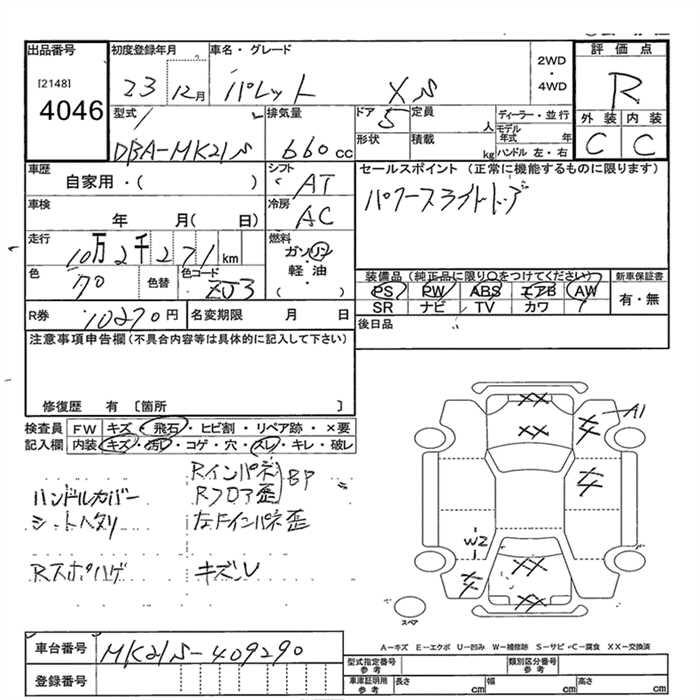 出品番号
[2148]
4046
初度登録年月
23 12月
車名・グレード
パレット XS
2WD
・
4WD
評価点
R
外装 内装
C C
型式
DBA-MK21S
排気量
660cc
ドア 5
定員 人
形状
積載 kg
ディーラー・並行
モデル年式 年
ハンドル 左・右
車歴
自家用・( )
シフト
AT
車検
年 月( 日)
冷房
AC
走行
10万2千271km
燃料
ガソリン
軽・油
( )
色
色替
色コード
ZJ3
R券
10270円
名変期限 月 日
セールスポイント (正常に機能するものに限ります)
装備品(純正品に限り○をつけてください)
PS PW ABS エアB AW
SR ナビ TV カワ
新車保証書
有・無
後日品
注意事項申告欄(不具合内容等は具体的に記入して下さい)
修復歴 有 〔箇所 〕
検査員記入欄
FW キズ・飛石・ヒビ割・リペア跡・×要
内装 キズ・汚レ・コゲ・穴・スレ・キレ・破レ
Rインパネ
Rフロア歪
BP
ハンドルカバー
シートヘタリ
左Fインパネ歪
Rスポハゲ
キズU
A1
XX
XX
W2
XX
XX
スペア
A-キズ E-エクボ U-凹み W-補修跡 S-サビ C-腐食 XX-交換済
車台番号
MK21S-409290
登録番号
型式指定番号 参考
類別区分番号 参考
車庫証明用 参考
長さ cm
幅 cm
高さ cm